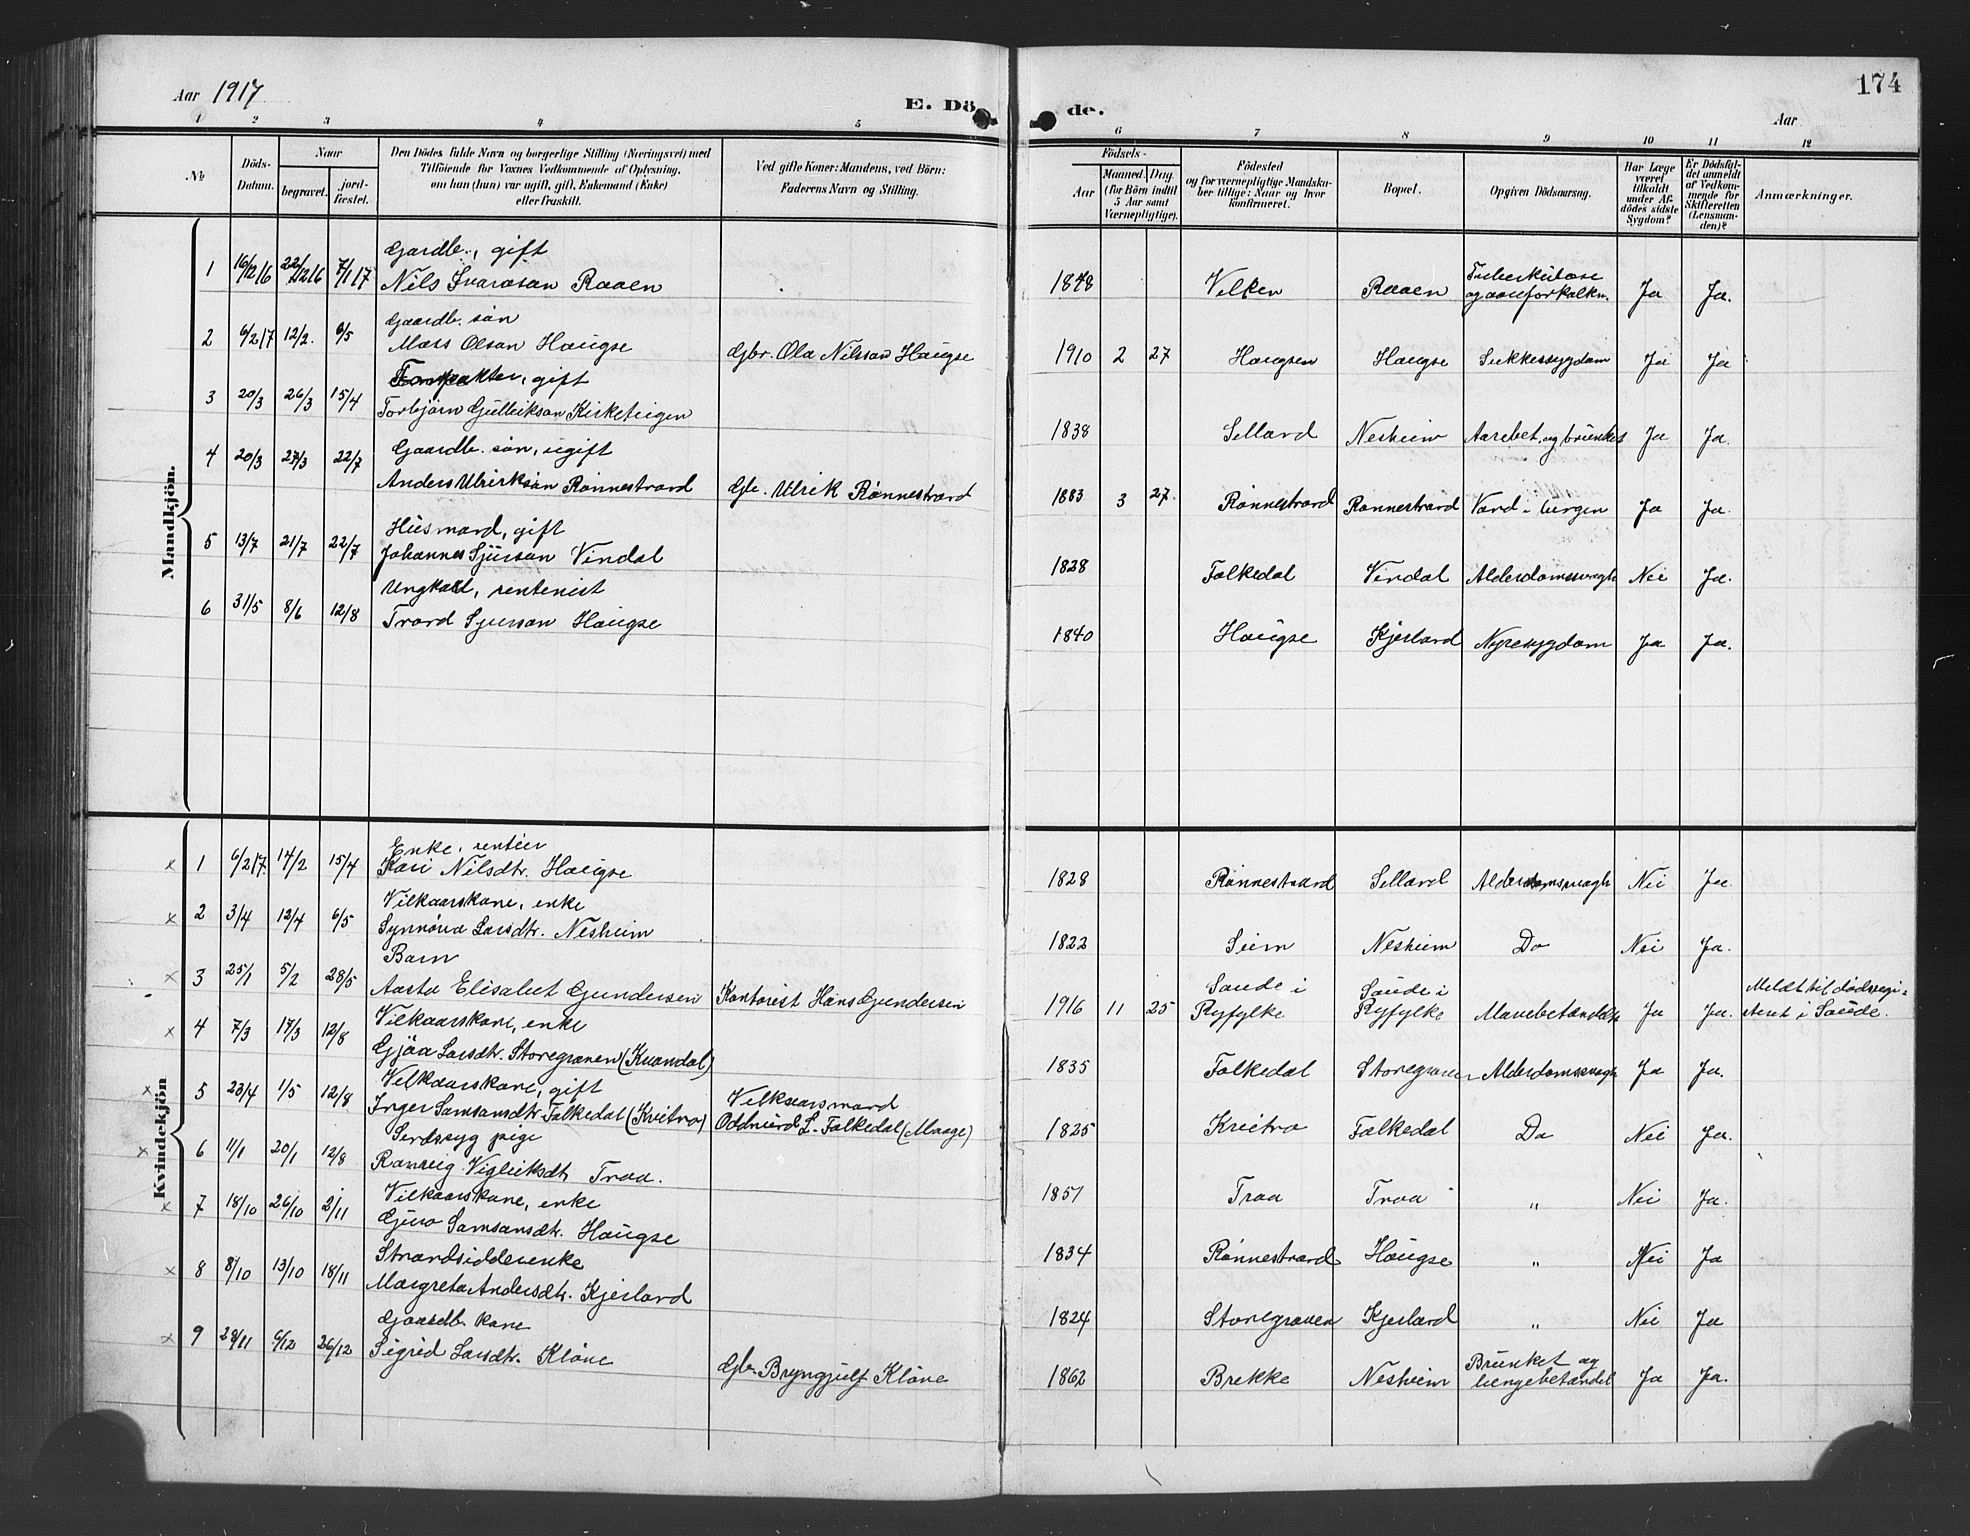 174
Aar 1917
E. Dö
de.
Aar
1 2 3 4 5 6 7 8 9 10 11 12
No
Döds-
Datum.
Naar
begravet.
jord-
fæstet.
Den Dödes fulde Navn og borgerlige Stilling (Næringsvei) med
Tilföiende for Voxnes Vedkommende af Oplysning,
om han (hun) var ugift, gift, Enkemand (Enke)
eller fraskilt.
Ved gifte Koner: Mandens, ved Börn:
Faderens Navn og Stilling.
Födsels-
Aar
Maaned. Dag.
(for Börn indtil
5 Aar samt
Værnepligtige).
Födested
og for værnepligtige Mandska-
ber tillige: Naar og hvor
konfirmeret.
Bopæl.
Opgiven Dödsaarsag.
Har Læge
været
tilkaldt
under Af-
dödes sidste
Sygdom?
Er Dödsfal-
det anmeldt
af Vedkom-
mende for
Skifteretten
(Lensman-
den)?
Anmærkninger.
Mandkjön.
Gardb., gift
1 16/12 16 22/12 16 7/1 17 Nils Ivarsson Raaen 1848 Velken Raaen Tuberkulose
og aareforkalkn. Ja Ja.
Gaardb. søn
2 6/2 17 12/2. 6/5 Mass Olson Haugse Gbr. Ola Nilsson Haugse 1910 2 27 Haugsen Haugse Sukkersygdom Ja Ja
Forpakter, gift
3 20/3 26/3 15/4 Torbjørn Gulleikson Kirketeigen 1838 Selland Nesheim Aarebet. og brunket Ja Ja.
Gaardb. søn, ugift
4 20/3 27/3 22/7 Anders Ulrikson Rønnestrand Gbr. Ulrik Rønnestrand 1883 3 27. Rønnestrand Rønnestrand Vand i lungen Ja Ja.
Husmand, gift
5 13/7 21/7 22/7 Johannes Sjurson Vindal 1828 Folkedal Vindal Alderdomssvagh Nei Ja.
Ungkarl, rentenist
6 31/5 8/6 12/8 Trond Sjurson Haugse 1840 Haugse Kjerland Nyresygdom Ja Ja.
Kvindekjön
Enke, rentier
x 1 6/2 17. 14/2 15/4 Kari Nilsdtr. Haugse 1828 Rønnestrand Selland Alderdomssvagh Nei Ja.
Vilkaarskone, enke
x 2 3/4 12/4 6/5 Synnøva Larsdtr. Nesheim 1822 Seim Nesheim Do Nei Ja.
Barn
x 3 25/1 5/2 28/5 Aasta Elisabet Gundersen Kontorist Hans Gundersen 1916 11 25 Saude i
Ryfylke Saude i
Ryfylke Mavebetændelse Ja Ja. Meldt til dødsregi-
steret i Saude.
Vilkaarskone, enke
x 4 7/3 17/3 12/8 Gjøa Larsdtr. Storegraven (Kvandal) 1835 Folkedal Storegraven Alderdomssvagh Ja Ja.
Vilkaarskone, gift
x 5 23/4 1/5 12/8 Inger Samsonsdtr. Folkedal (Kvitno) Vilkaarsmand
Oddmund L. Folkedal (Maage) 1825 Kvitno Folkedal Do Nei Ja.
Sindssyg pige
x 6 11/1 20/1 12/8 Ranveig Vigleiksdtr Traa. 1851 Traa Traa „ Nei Ja.
Vilkaarskone, enke
x 7 18/10 26/10 2/11 Guro Samsonsdtr. Haugse 1834 Rønnestrand Haugse „ Nei Ja
Strandsidderenke
x 8 8/10 13/10 18/11 Margreta Andersdtr. Kjerland 1824 Storegraven Kjerland „ Nei Ja
Gaardb. kone
x 9 28/11 6/12 26/12 Sigrid Larsdtr. Kløve Gbr. Bryngjulf Kløve 1862 Brekke Nesheim Brunket og
lungebetændel Ja Ja.